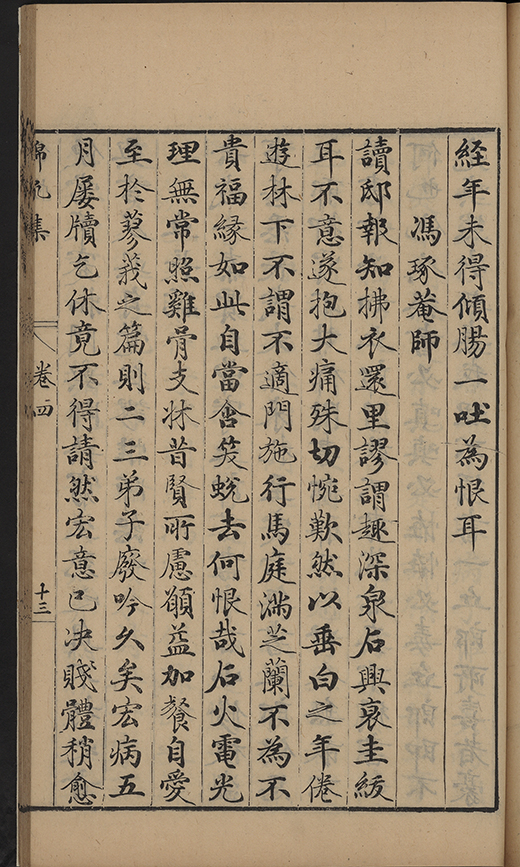 経年未得傾腸一吐為恨耳
馮琢菴師
讀邸報知拂衣還里謬謂趣深泉石興衰圭紱
耳不意遂抱大痛殊切惋歎然以垂白之年倦
遊林下不謂不適門施行馬庭滿芝蘭不為不
貴福緣如此自當含笑蛻去何恨哉石火電光
理無常照雞骨支牀昔賢所慮願益加餐自愛
至於蓼莪之篇則二三弟子廢吟久矣宏病五
月屢牘乞休竟不得請然宏意已决賤體稍愈
錦帆集
卷四
十三